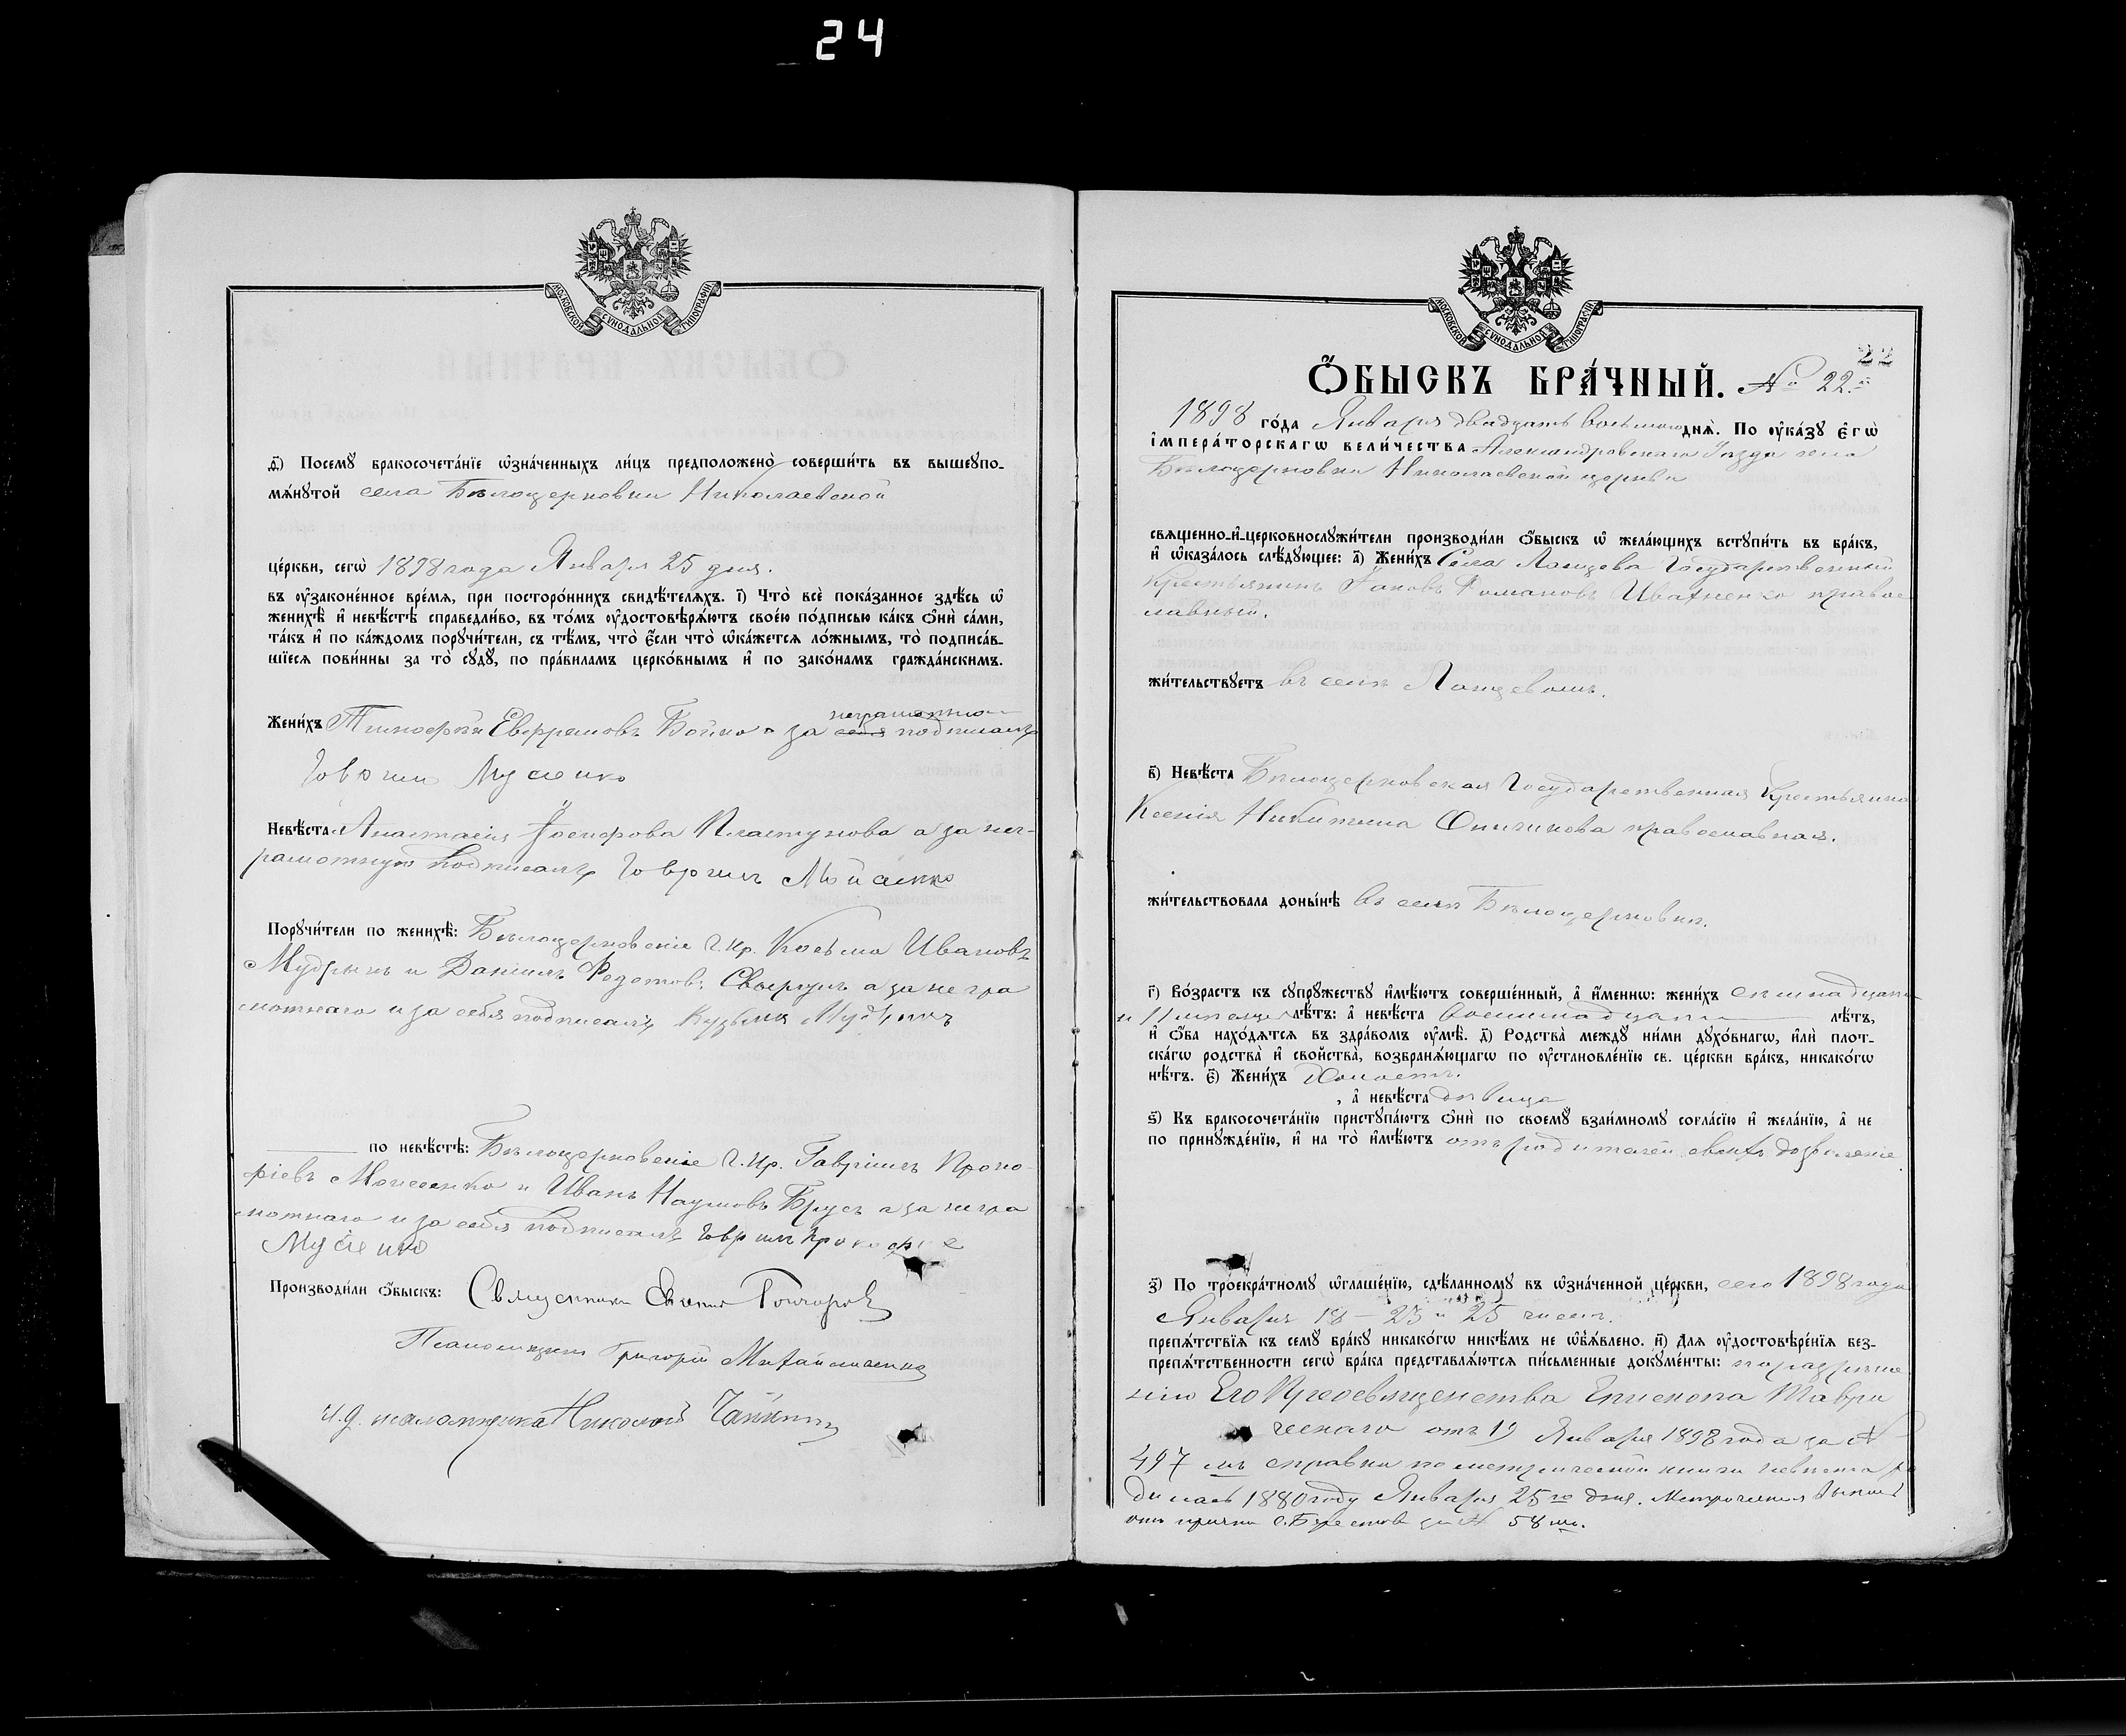 24
МОСКОВСКОЙ СѴНОДАЛЬНОЙ ТИПОГРАФІИ
ѳ҃) Посемꙋ̀ бракосочета́нїе ѡ҆зна́ченныхъ ли́цъ предположено̀ соверши́ть въ вышеупо-
мѧ́нꙋтой села Бѣлоцерковки Николаевской
це́ркви, сегѡ̀ 1898 года Января 25 дня.
въ ᲂу҆зако́ненное вре́мѧ, при посторо́ннихъ свидѣ́телѧхъ. і҃) Что̀ всѐ пока́занное здѣ́сь ѡ҆
женихѣ̀ и҆ невѣ́стѣ справедли́во, въ то́мъ ᲂу҆достовѣрѧ́ютъ свое́ю по́дписью ка́къ ѻ҆нѝ са́ми,
та́къ и҆ по ка́ждомъ порꙋчи́тели, съ тѣ́мъ, что̀ є҆́сли что̀ ѡ҆ка́жетсѧ ло́жнымъ, то̀ подписа́в-
шїесѧ пови́нны за то̀ сꙋдꙋ̀, по пра́виламъ церко́внымъ и҆ по зако́намъ гражда́нскимъ.
неграмотнаго
Жени́хъ Тимофей Евфремовъ Бойко а за себя подписалъ
Говрш Мусіенко
Невѣ́ста Анастасія Іосифова Пластунова а за нег-
рамотную подписалъ Говршлъ Мойсіенко
Порꙋчи́тели по женихѣ̀: Бѣлоцерковскіе г. кр. Косьма Ивановъ
Мудрынъ и Даніилъ Федотовъ а за негра
мотнаго и за себя подписалъ Кузьма Мудрынъ
по невѣ́стѣ: Бѣлоцерковскіе г. кр. Гавріилъ Проко-
фіевъ Моисеенко и Иванъ Наумовъ Брусъ а за негра
мотнаго и за себя подписалъ Говршлъ Прокофіе
Мусіенко
Производи́ли ѻ҆́быскъ: Священникъ Евфимій Гончаровъ
Псаломщикъ Григорій Михайличенко
И. д. псаломщика Николай Чайкинъ
МОСКОВСКОЙ СѴНОДАЛЬНОЙ ТИПОГРАФІИ
22
Ѻ҆́БЫСКЪ БРА́ЧНЫЙ. № 22й
1898 го́да Января двадцать восьмого днѧ̀. По ᲂу҆ка́зꙋ є҆гѡ̀
і҆мпера́торскагѡ вели́чества Александровскаго Уѣзда села
Бѣлоцерковки Николаевской церкви
свѧщенно-и҆-церковнослꙋжи́тели производи́ли ѻ҆́быскъ ѡ҆ жела́ющихъ встꙋпи́ть въ бра́къ,
и҆ ѡ҆каза́лось слѣ́дꙋющее: а҃) Жени́хъ Села Ланцева Государственный
Крестьянинъ Іаковъ Романовъ Ивахненко правос
лавный.
жи́тельствꙋетъ въ селѣ Ланцевомъ.
в҃) Невѣ́ста Бѣлоцерковская Государственная Крестьянка
Ксенія Никитина Опичкова православная.
жи́тельствовала доны́нѣ въ селѣ Бѣлоцерковкѣ.
г҃) Во́зрастъ къ сꙋпрꙋ́жествꙋ и҆мѣ́ютъ соверше́нный, а҆ и҆́меннѡ: жени́хъ семнадцати
и 11 мѣсяцевъ лѣ́тъ: а҆ невѣ́ста восемнадцати лѣ́тъ,
и҆ ѻ҆́ба нахо́дѧтсѧ въ здра́вомъ ᲂу҆мѣ̀. д҃) Родства̀ междꙋ̀ ни́ми дꙋхо́внагѡ, и҆лѝ плот-
ска́гѡ родства̀ и҆ сво́йства, возбранѧ́ющагѡ по ᲂу҆становле́нїю св. це́ркви бра́къ, никако́гѡ
нѣ́тъ. є҃) Жени́хъ Холостъ.
, а҆ невѣ́ста дѣвица
ѕ҃) Къ бракосочета́нїю пристꙋпа́ютъ ѻ҆нѝ по своемꙋ̀ взаи́мномꙋ согла́сїю и҆ жела́нїю, а҆ не
по принꙋжде́нїю, и҆ на то̀ и҆мѣ́ютъ отъ родителей своихъ дозволеніе
з҃) По троекра́тномꙋ ѡ҆глаше́нїю, сдѣ́ланномꙋ въ ѡ҆зна́ченной це́ркви, сего 1898 года
Января 18 – 23 и 25 чиселъ.
препѧ́тствїѧ къ семꙋ̀ бра́кꙋ никако́гѡ никѣ́мъ не ѡ҆б̾ѧ́влено. и҃) Длѧ ᲂу҆достовѣре́нїѧ без-
препѧ́тственности сегѡ̀ бра́ка представлѧ́ютсѧ пи́сьменные докꙋме́нты: по разрѣше
нію Его Преосвященства Епископа Таври
ческаго отъ 19 Января 1898 года за №
497 мъ справки по метрической книги невѣста ро
дилась 1880 году Января 25го дня. Метрическая выпись
отъ причта с. Берестова за № 58 мъ.